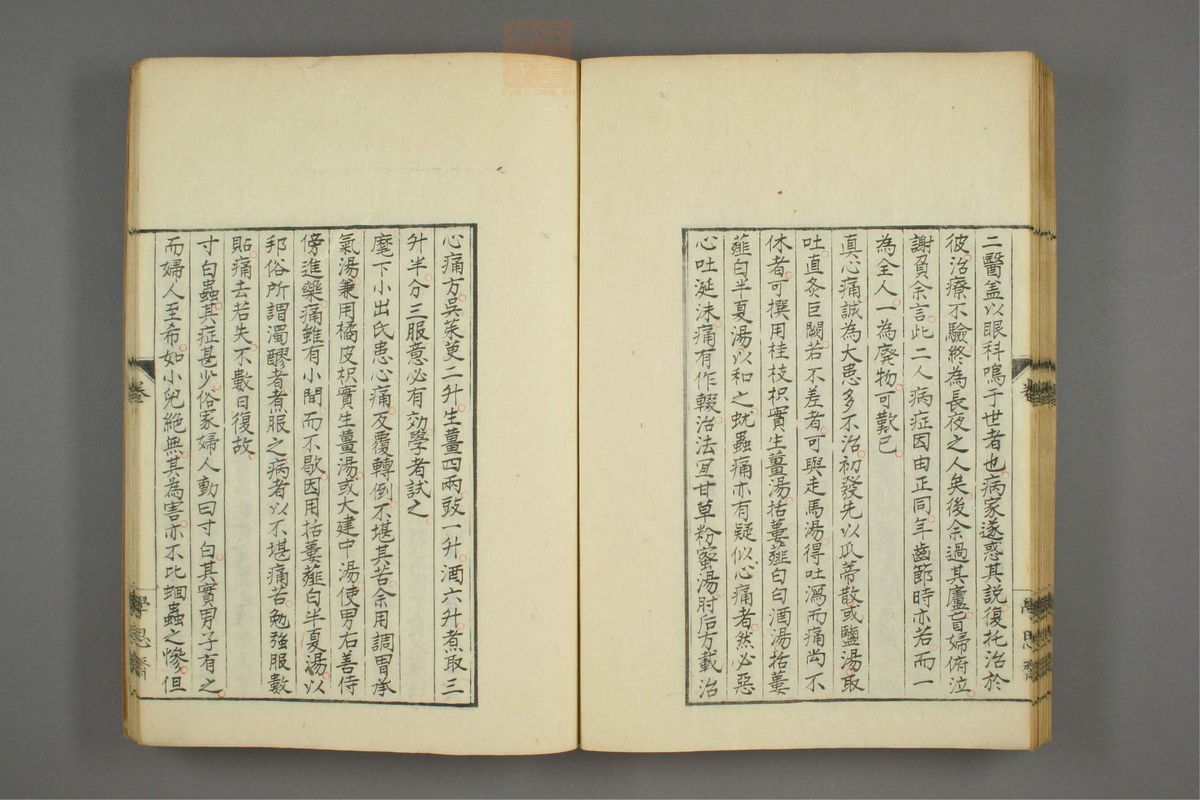 二醫盖以眼科鳴于世者也病家遂惑其説復托治於
彼治療不驗終為長夜之人矣後余過其廬盲婦俯泣
謝負余言此二人病症因由正同年齒節時亦若而一
為全人一為廃物可歎已
真心痛誠為大患多不治初發先以瓜蒂散或鹽湯取
吐直灸巨闕若不差者可與走馬湯得吐瀉而痛尚不
休者可撰用桂枝枳實生薑湯括蔞薤白白酒湯括蔞
薤白半夏湯以和之蚘蟲痛亦有疑似心痛者然必惡
心吐涎沫痛有作輟治法宜甘草粉蜜湯肘后方載治
心痛方吳茱萸二升生薑四兩豉一升酒六升煮取三
升半分三服意必有効學者試之
麾下小出氏患心痛反覆轉倒不堪其苦余用調胃承
氣湯兼用橘皮枳實生薑湯或大建中湯使男右善侍
傍進藥痛雖有小間而不歇因用括蔞薤白半夏湯以
邦俗所謂濁醪者煮服之病者以不堪痛苦勉強服數
貼痛去若失不數日復故
寸白蟲其症甚少俗家婦人動曰寸白其實男子有之
而婦人至希如小兒絶無其為害亦不比蛔蟲之慘但
卷
學思齋